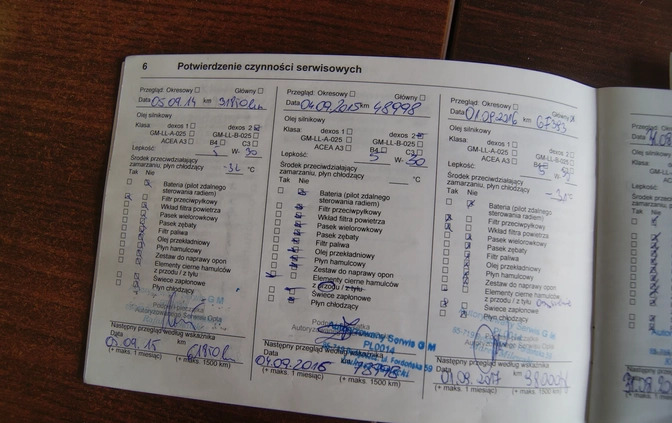 6 Potwierdzenie czynności serwisowych
Przegląd: Okresowy ☐ Główny ☐
Data 05.09.14 km 31850 km
Olej silnikowy
Klasa: dexos 1 ☐ dexos 2 ☒
GM-LL-A-025 ☐ GM-LL-B-025 ☐
ACEA A3 ☐ B4 ☐ C3 ☐
Lepkość: 5 W- 30
Środek przeciwdziałający
zamarzaniu, płyn chłodzący °C
Tak Nie
Bateria (pilot zdalnego
sterowania radiem)
Filtr przeciwpyłkowy
Wkład filtra powietrza
Pasek wielorowkowy
Pasek zębaty
Filtr paliwa
Olej przekładniowy
Płyn hamulcowy
Zestaw do naprawy opon
Elementy cierne hamulców
z przodu / z tyłu
Świece zapłonowe
Płyn chłodzący
Następny przegląd według wskaźnika
Data km
05.09.15 61850 km
(+ maks. 1 miesiąc) (+ maks. 1500 km)
Przegląd: Okresowy ☐ Główny ☐
Data 04.09.2015 km 48998
Olej silnikowy
Klasa: dexos 1 ☐ dexos 2 ☒
GM-LL-A-025 ☐ GM-LL-B-025 ☐
ACEA A3 ☐ B4 ☐ C3 ☐
Lepkość: 5 W- 30
Środek przeciwdziałający
zamarzaniu, płyn chłodzący °C
Tak Nie
Bateria (pilot zdalnego
sterowania radiem)
Filtr przeciwpyłkowy
Wkład filtra powietrza
Pasek wielorowkowy
Pasek zębaty
Filtr paliwa
Olej przekładniowy
Płyn hamulcowy
Zestaw do naprawy opon
Elementy cierne hamulców
z przodu / z tyłu
Świece zapłonowe
Płyn chłodzący
Serwis GM
PL0014
Następny przegląd według wskaźnika
Data
04.09.2016
(+ maks. 1 miesiąc) (+ maks. 1500 km)
Przegląd: Okresowy ☐ Główny ☒
Data 01.09.2016 km
Olej silnikowy
Klasa: dexos 1 ☐ dexos 2 ☒
GM-LL-A-025 ☐ GM-LL-B-025 ☐
ACEA A3 ☐ B4 ☐ C3 ☐
Lepkość: 5 W-
Środek przeciwdziałający
zamarzaniu, płyn chłodzący
Tak Nie
Bateria (pilot zdalnego
sterowania radiem)
Filtr przeciwpyłkowy
Wkład filtra powietrza
Pasek wielorowkowy
Pasek zębaty
Filtr paliwa
Olej przekładniowy
Płyn hamulcowy
Zestaw do naprawy opon
Elementy cierne hamulców
z przodu / z tyłu
Świece zapłonowe
Płyn chłodzący
Następny przegląd według wskaźnika
Data km
01.09.2017 98000
(+ maks. 1 miesiąc) (+ maks. 1500 km)